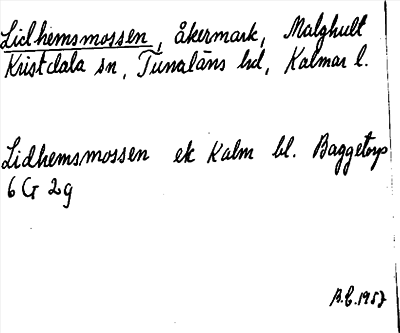 Lidhemsmossen, åkermark, Malghult
Kristdala sn, Tunaläns hd, Kalmar l.
Lidhemsmossen ek Kalm bl. Baggetorp
6 G 2g
B.E. 1957